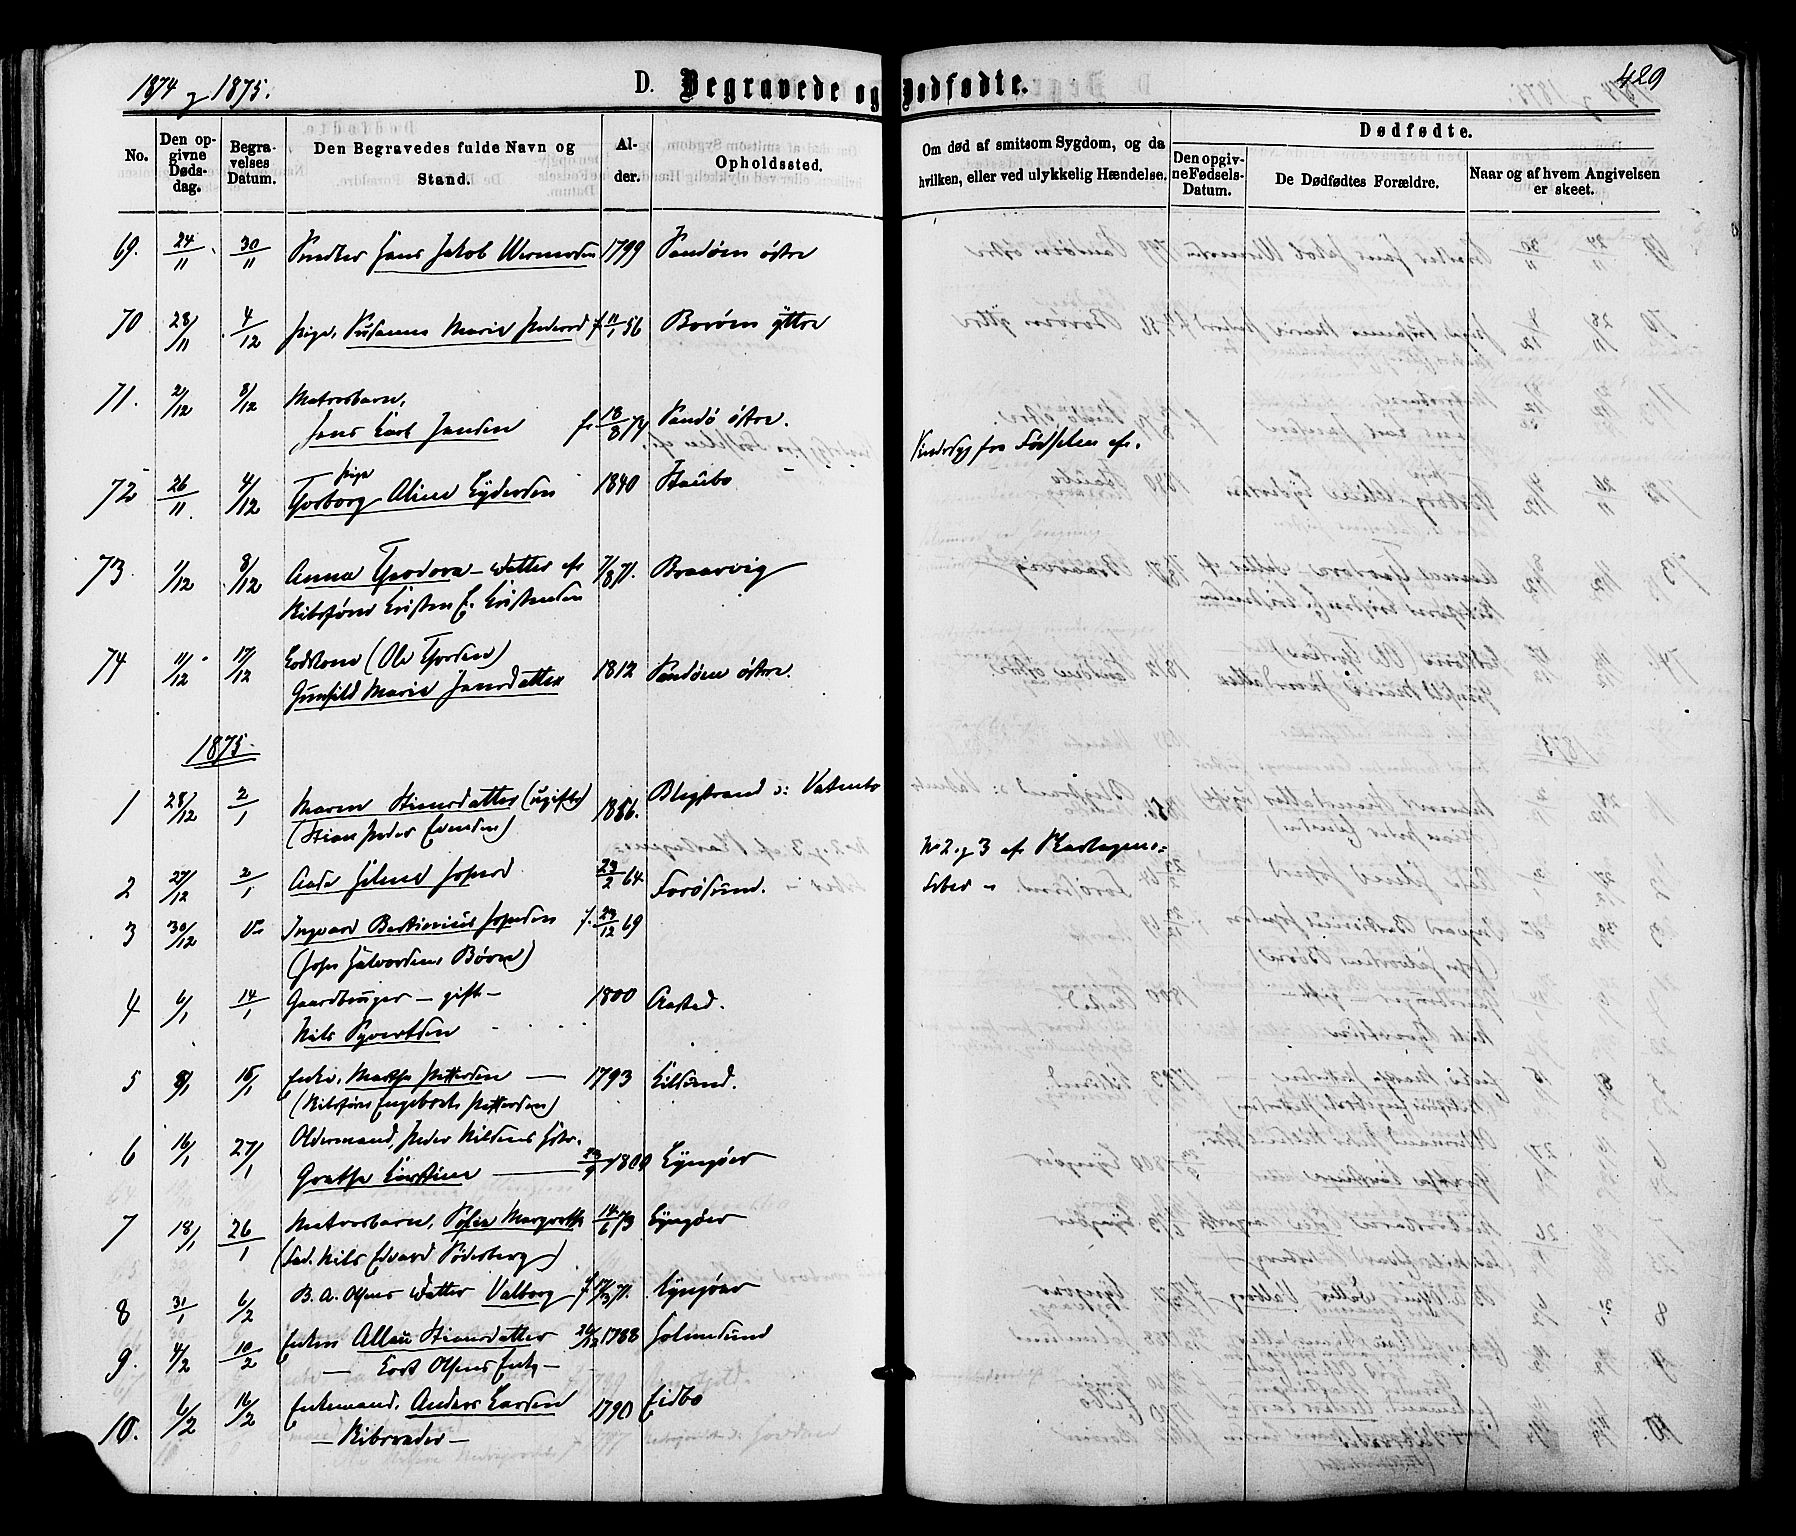 1874 og 1875.
D. Begravede og Dødfødte.
429
No.
Den opgivne Dødsdag.
Begravelses Datum.
Den Begravedes fulde Navn og Stand.
Alder.
Opholdssted.
Om død af smitsom Sygdom, og da hvilken, eller ved ulykkelig Hændelse.
Dødfødte.
Den opgivne Fødsels-Datum.
De Dødfødtes Forældre.
Naar og af hvem Angivelsen er skeet.
69. 24/11 30/11 Hans Jakob Wermersen 1799 Sandøen østre
70 28/11 4/12 Pige, Susanne Marie Pedersd f 11/1 56 Borøen ytre
71. 2/12 8/12 Matrosbarn,
Jens Karl Jensen f. 18/8 74 Sandø østre.
Fødselen af.
72 26/11 4/12 Pige
Thorborg Aline Eydersen 1840 Staubo
73. 1/12 8/12 Anna Theodora - Datter af 7/8 71. Braarvig
Skibsfører Kristen E. Kristensen
74 11/12 17/12 Lodskone (Ole Thorsen)
Gunhild Marie Jensdatter 1812 Sandøen østre.
1875.
1 28/12 2/1 Maren Stiansdatter (ugift) 1856. Vatnebo
(Stian Peder Evensen)
2 27/12 2/1 Aase Helene Johnsd 23/2 64 Forøsund.
No 2 og 3 af
3 30/12 Ingvard Johnsen f. 23/12 69
(John Halvorsens Børn)
4 6/1 14/1 Gaardbruger - gift - 1800 Aasted.
Nils Syvertsen
5 8/1 15/1 Enke, Marthe Pettersen 1793 Kilsund.
(Skibsfører Engebret Pettersen)
6 16/1 27/1 Oldermand, Peder Nilsens
Grethe Kirstine 23/9 1800 Lyngøer
7 18/1 26/1 Matrosbarn, Sofie Margrethe 14/6 73 Lyngøer
(Fad. Nils Edvard Søderberg)
8 31/1 6/2 B. A. Olsens Datter Valborg f 71. Lyngøer
9. 4/2 10/2 Enken Stiansdatter 26/12 1788 Holmesund
- Olsens Enke -
10. 6/2 16/2 Enkemand, Anders Larsen 1790 Eidbo
- Skibsreder -